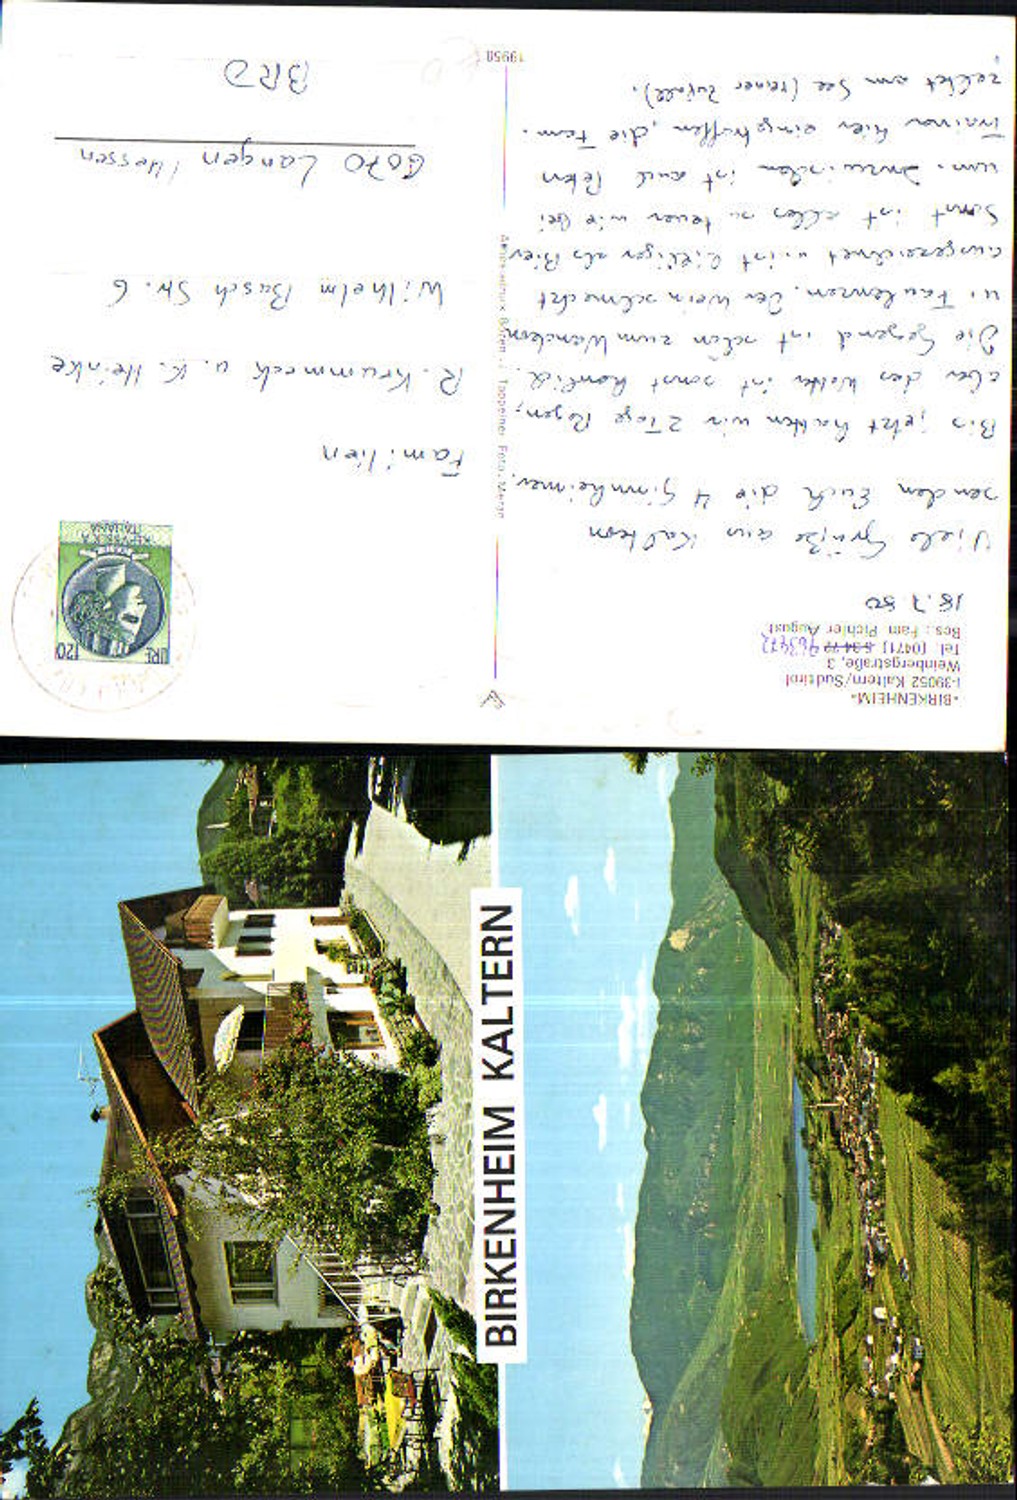 »BIRKENHEIM«
I-39052 Kaltern/Südtirol
Weinbergstraße, 3
Tel. (0471) 5 34 72 963472
Bes.: Fam. Pichler August
18.7.80
Viele Grüße aus Kaltern
senden Euch die 4 Ginnheimer.
Bis jetzt hatten wir 2 Tage Regen,
aber das Wetter ist sonst herrlich.
Die Gegend ist schön zum Wandern
u. Faulenzen. Der Wein schmeckt
ausgezeichnet u. ist billiger als Bier
Sonst ist alles so teuer wie bei
uns. Inzwischen ist auch Peters
Trainer hier eingetroffen, die Fam.
zeltet am See (reiner Zufall).
19958
Foto: Merge
LIRE 120
REPVBBLICA
ITALIANA
Familien
R. Krummeck u. K. Heinke
Wilhelm Busch Str. 6
6070 Langen / Hessen
BRD
BIRKENHEIM KALTERN